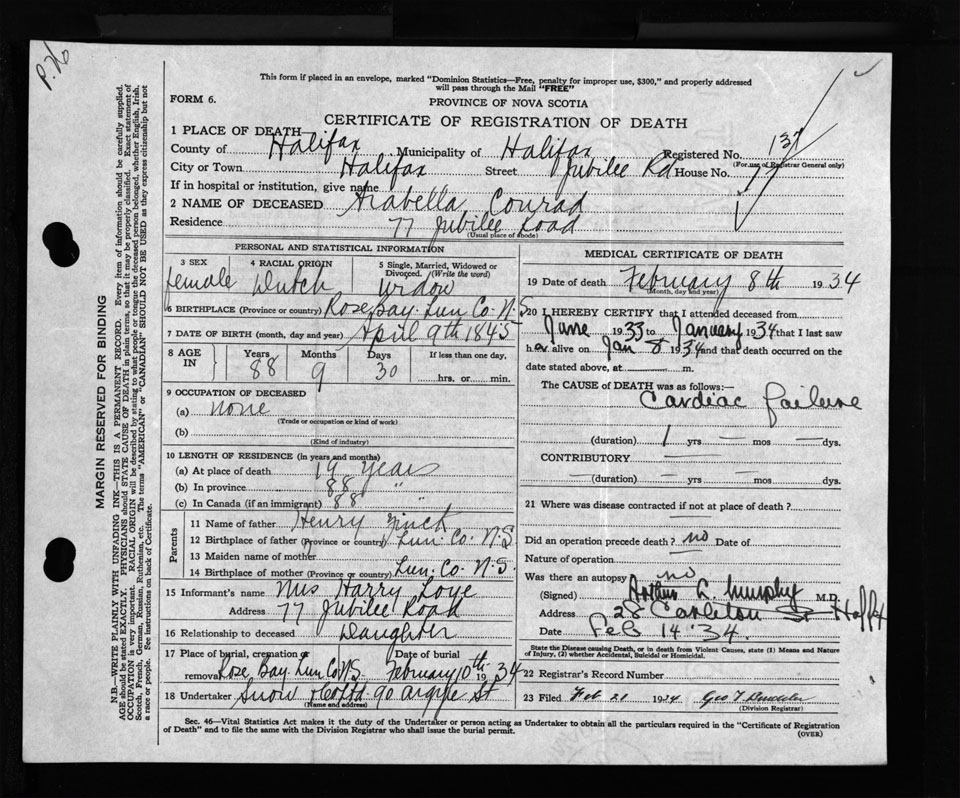 P. 76
This form if placed in an envelope, marked "Dominion Statistics—Free, penalty for improper use, $300," and properly addressed
will pass through the Mail "FREE"
FORM 6.
PROVINCE OF NOVA SCOTIA
CERTIFICATE OF REGISTRATION OF DEATH
1 PLACE OF DEATH—
County of Halifax Municipality of Halifax Registered No. 137
(For use of Registrar General only)
City or Town Halifax Street Jubilee Rd House No. 77
If in hospital or institution, give name
2 NAME OF DECEASED Arabella Conrad
Residence 77 Jubilee Road
(Usual place of abode)
PERSONAL AND STATISTICAL INFORMATION
3 SEX 4 RACIAL ORIGIN 5 Single, Married, Widowed or
Divorced. (Write the word)
female Dutch Widow
6 BIRTHPLACE (Province or country) Rose Bay Lun Co. N.S
7 DATE OF BIRTH (month, day and year) April 9th 1845
8 AGE IN Years Months Days If less than one day,
88 9 30 hrs. or min.
9 OCCUPATION OF DECEASED
(a) none
(Trade or occupation or kind of work)
(b)
(Kind of industry)
10 LENGTH OF RESIDENCE (in years and months)
(a) At place of death 19 years
(b) In province 88 "
(c) In Canada (if an immigrant) 88 "
Parents
11 Name of father Henry
12 Birthplace of father (Province or country) Lun. Co. N.S
13 Maiden name of mother
14 Birthplace of mother (Province or country) Lun. Co. N.S.
15 Informant's name Mrs Harry Loye
Address 77 Jubilee Road
16 Relationship to deceased Daughter
17 Place of burial, cremation or removal Date of burial
Rose Bay Lun Co N.S. February 10th 1934
18 Undertaker Snow 90 Argyle St
(Name and address)
MEDICAL CERTIFICATE OF DEATH
19 Date of death February 8th 1934
(Month, day and year)
20 I HEREBY CERTIFY that I attended deceased from
June 1933 to January 1934 that I last saw
her alive on Jan 8 1934 and that death occurred on the
date stated above, at m.
The CAUSE OF DEATH was as follows:—
Cardiac failure
(duration) 1 yrs — mos — dys.
CONTRIBUTORY —
(duration) — yrs — mos — dys.
21 Where was disease contracted if not at place of death?
Did an operation precede death? no Date of
Nature of operation
Was there an autopsy no
(Signed) Arthur L. Murphy M.D.
Address 28 Carleton St Halifx
Date Feb 14 '34.
State the Disease causing Death, or in death from Violent Causes, state (1) Means and Nature
of Injury, (2) whether Accidental, Suicidal or Homicidal.
22 Registrar's Record Number
23 Filed Feb 21 1934 Geo T
(Division Registrar)
Sec. 46—Vital Statistics Act makes it the duty of the Undertaker or person acting as Undertaker to obtain all the particulars required in the "Certificate of Registration
of Death" and to file the same with the Division Registrar who shall issue the burial permit.
(OVER)
MARGIN RESERVED FOR BINDING
N.B.—WRITE PLAINLY WITH UNFADING INK—THIS IS A PERMANENT RECORD. Every item of information should be carefully supplied.
AGE should be stated EXACTLY. PHYSICIANS should STATE CAUSE OF DEATH in plain terms, so that it may be properly classified. Exact statement of
OCCUPATION is very important. RACIAL ORIGIN will be described by stating to what people or tongue the deceased person belonged, whether English, Irish,
Scotch, French, German, Russian, Ruthenian, etc. The terms "AMERICAN" or "CANADIAN" SHOULD NOT BE USED as they express citizenship but not
a race or people. See instructions on back of Certificate.